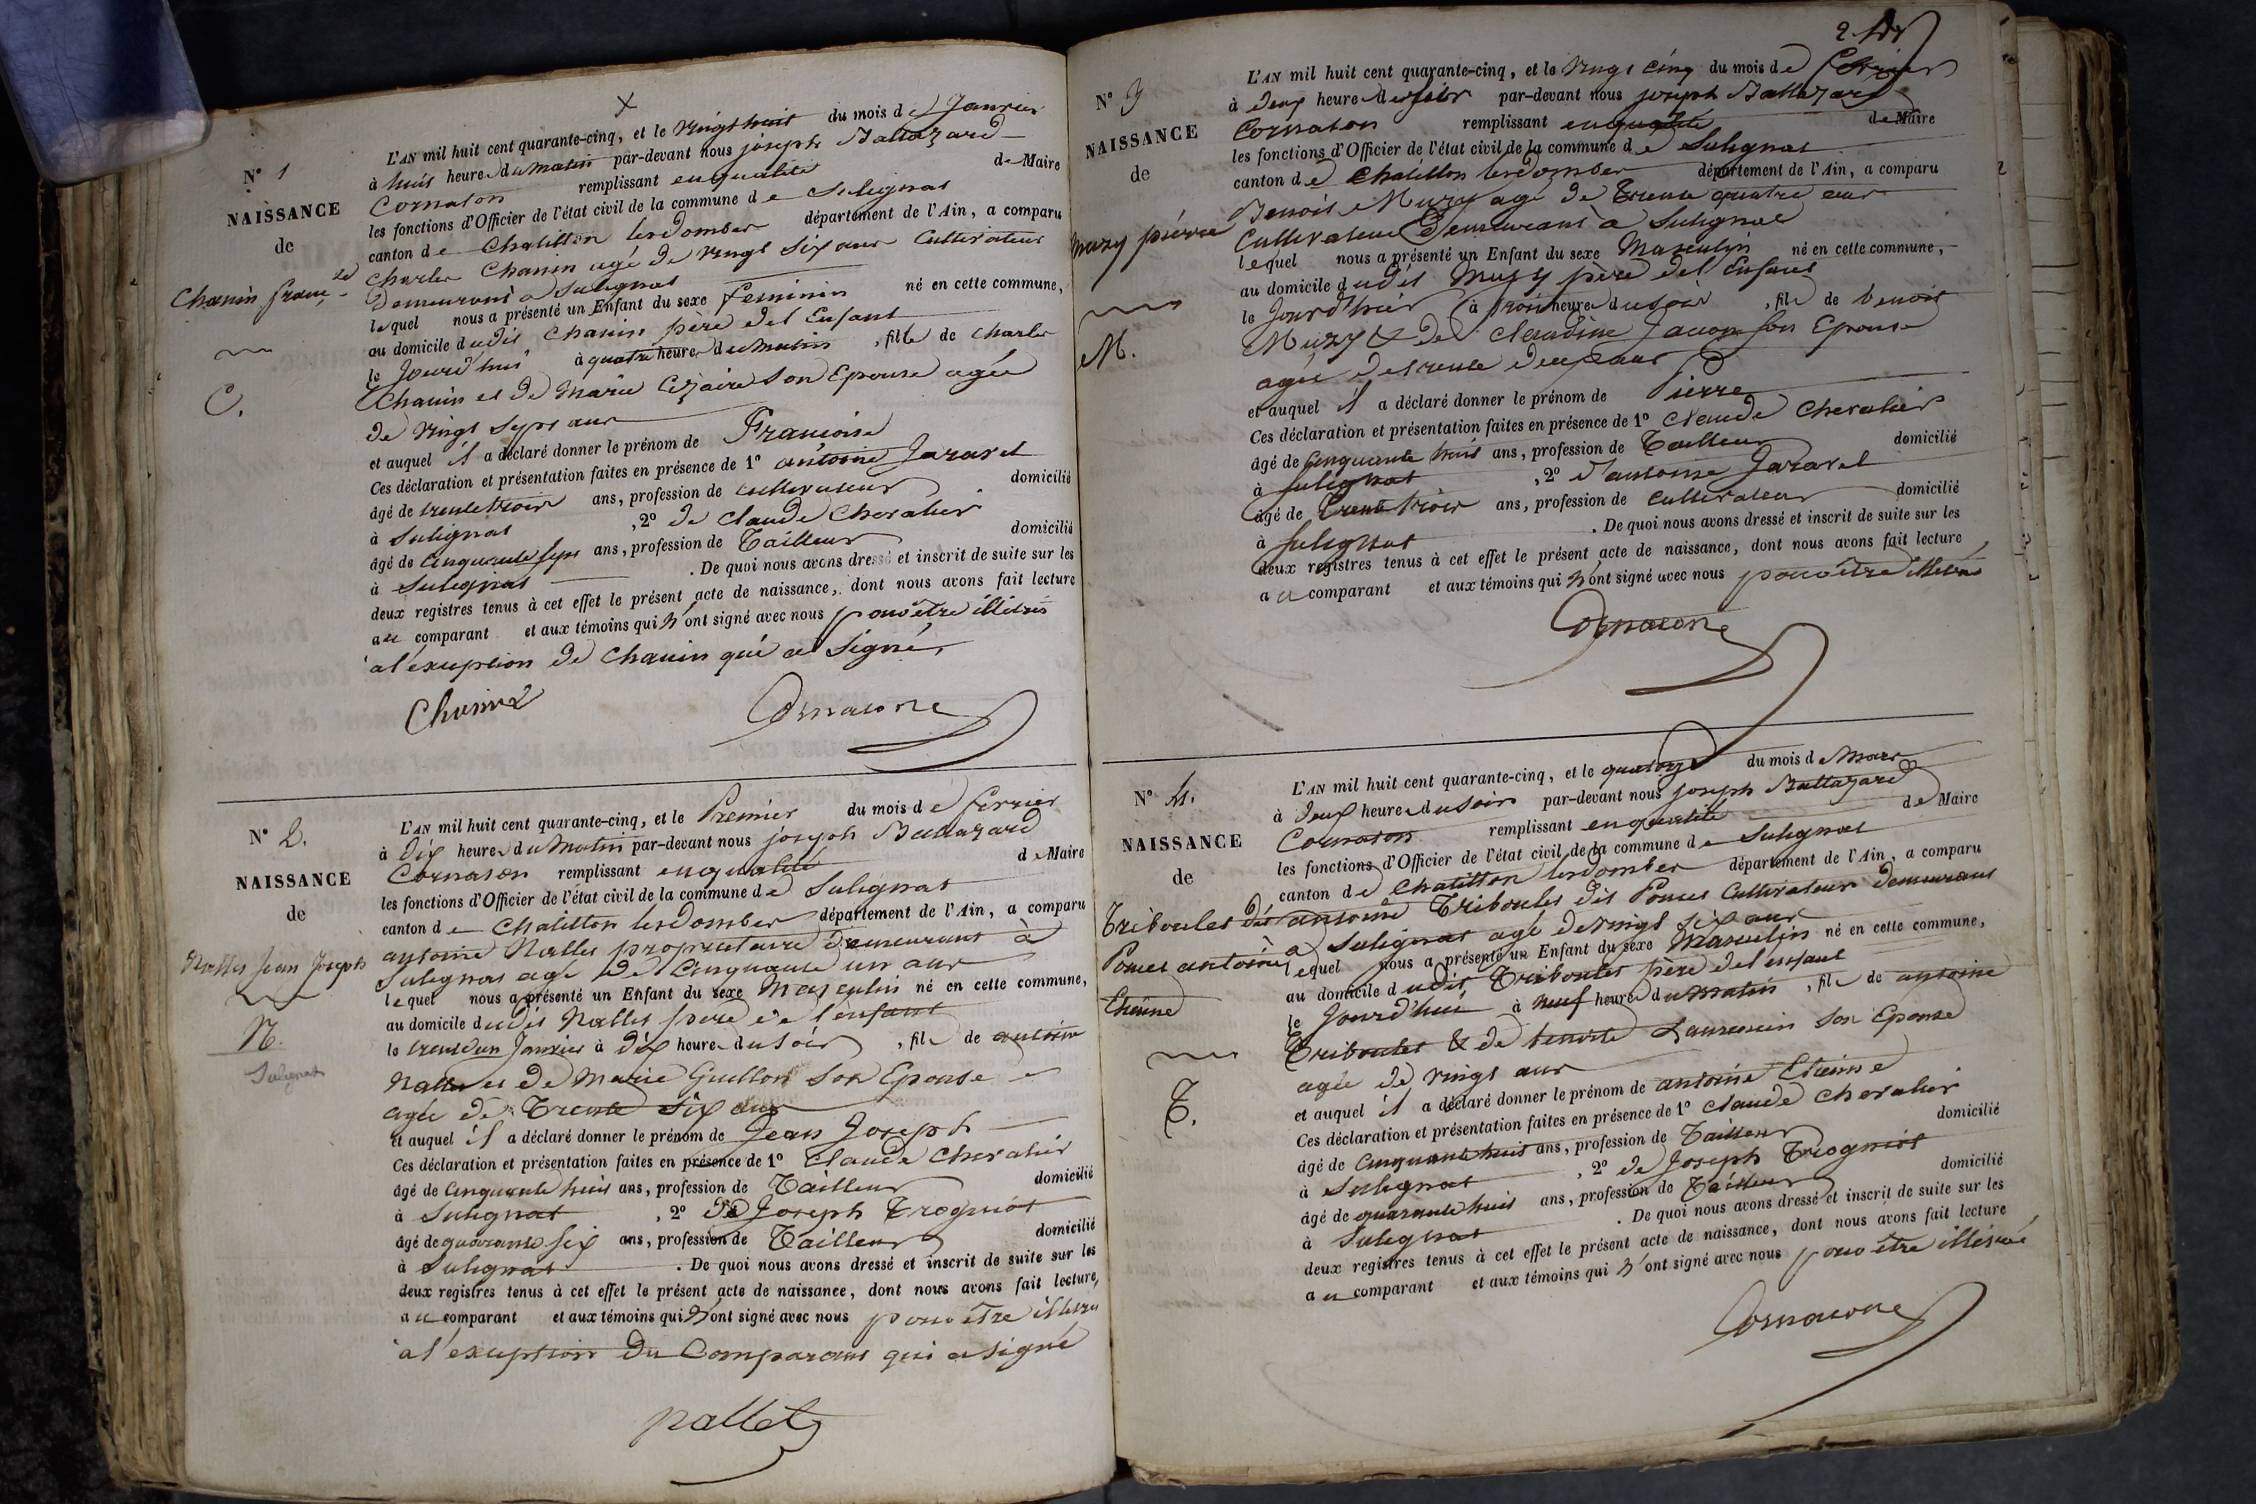 N° 1
NAISSANCE
de
Chanin franc.se
C.
L'AN mil huit cent quarante-cinq, et le vingt huit du mois de Janvier
à huit heures du matin par-devant nous joseph Baltazard
Cornaton remplissant en qualité de Maire
les fonctions d'Officier de l'état civil de la commune de Sulignat
canton de Chatillon les Dombes département de l'Ain, a comparu
Charles Chanin agé de vingt six ans Cultivateur
Demeurant à Sulignat
lequel nous a présenté un Enfant du sexe feminin né en cette commune,
au domicile dudit Chanin père del Enfant
le Jourd'hui à quatre heures du matin, fille de Charles
Chanin et de Marie Cézaire son Epouse agée
de vingt sept ans
et auquel il a déclaré donner le prénom de Francoise
Ces déclaration et présentation faites en présence de 1° antoine Jaravel
âgé de trente trois ans, profession de cultivateur domicilié
à Sulignat, 2° de Claude Chevalier
âgé de Cinquante sept ans, profession de Tailleur domicilié
à Sulignat. De quoi nous avons dressé et inscrit de suite sur les
deux registres tenus à cet effet le présent acte de naissance, dont nous avons fait lecture
au comparant et aux témoins qui n'ont signé avec nous pour être illitrés
a l'exuption de Chanin qui a Signé,
Chanin
Cornaton
N° 2.
NAISSANCE
de
Nallet Jean Joseph
N.
Sulignat
L'AN mil huit cent quarante-cinq, et le Premier du mois de fevrier
à dix heures du Matin par-devant nous joseph Baltazard
Cornaton remplissant en qualité de Maire
les fonctions d'Officier de l'état civil de la commune de Sulignat
canton de Chatillon les Dombes département de l'Ain, a comparu
antoine Nallet propriétaire Demeurant à
Sulignat agé de Cinquante un ans
lequel nous a présenté un Enfant du sexe Masculin né en cette commune,
au domicile dudit Nallet père de l'enfant
le trente un Janvier à dix heures du Soir, fils de antoine
Nallet et de Marie Guillon Son Epouse
agée de Trente six ans
et auquel il a déclaré donner le prénom de Jean Joseph
Ces déclaration et présentation faites en présence de 1° Claude Chevalier
âgé de Cinquante huit ans, profession de Tailleur domicilié
à Sulignat, 2° de Joseph Trogniot
âgé de quarante six ans, profession de Tailleur domicilié
à Sulignat. De quoi nous avons dressé et inscrit de suite sur les
deux registres tenus à cet effet le présent acte de naissance, dont nous avons fait lecture,
au comparant et aux témoins qui n'ont signé avec nous pour être
à l'exuption du Comparant qui a signé
nallet
2
N° 3
NAISSANCE
de
Muzy pierre
M.
L'AN mil huit cent quarante-cinq, et le vingt cinq du mois de fevrier
à deux heures du soir par-devant nous joseph Baltazard
Cornaton remplissant en qualité de Maire
les fonctions d'Officier de l'état civil de la commune de Sulignat
canton de Chatillon les Dombes département de l'Ain, a comparu
Benoit Muzy agé de Trente quatre ans
Cultivateur Demeurant à Sulignat
lequel nous a présenté un Enfant du sexe Masculin né en cette commune,
au domicile dudit Muzy père del Enfant
le Jourd'hier à trois heures du soir, fils de benoit
Muzy & de Claudine son Epouse
agée de trente deux ans
et auquel il a déclaré donner le prénom de Pierre
Ces déclaration et présentation faites en présence de 1° Claude Chevalier
âgé de Cinquante huit ans, profession de Tailleur domicilié
à Sulignat, 2° d'antoine Jaravel
âgé de Trente trois ans, profession de cultivateur domicilié
à Sulignat. De quoi nous avons dressé et inscrit de suite sur les
deux registres tenus à cet effet le présent acte de naissance, dont nous avons fait lecture
au comparant et aux témoins qui n'ont signé avec nous pour être
Cornaton
N° 4.
NAISSANCE
de
Triboulet dit
Poncet antoine
Etienne
T.
L'AN mil huit cent quarante-cinq, et le quatorze du mois de Mars
à deux heures du soir par-devant nous joseph Baltazard
Cornaton remplissant en qualité de Maire
les fonctions d'Officier de l'état civil de la commune de Sulignat
canton de Chatillon les Dombes département de l'Ain, a comparu
antoine Triboulet dit Poncet Cultivateur demeurant
à Sulignat agé de vingt six ans
lequel nous a présenté un Enfant du sexe Masculin né en cette commune,
au domicile dudit Triboulet père del enfant
le Jourd'hui à neuf heures du matin, fils de antoine
Triboulet & de benoite Laurencin Son Epouse
agée de vingt ans
et auquel il a déclaré donner le prénom de antoine Etienne
Ces déclaration et présentation faites en présence de 1° Claude Chevalier
âgé de Cinquante huit ans, profession de Tailleur domicilié
à Sulignat, 2° de Joseph Trogniot
âgé de quarante huit ans, profession de Tailleur domicilié
à Sulignat. De quoi nous avons dressé et inscrit de suite sur les
deux registres tenus à cet effet le présent acte de naissance, dont nous avons fait lecture
au comparant et aux témoins qui n'ont signé avec nous pour être
Cornaton